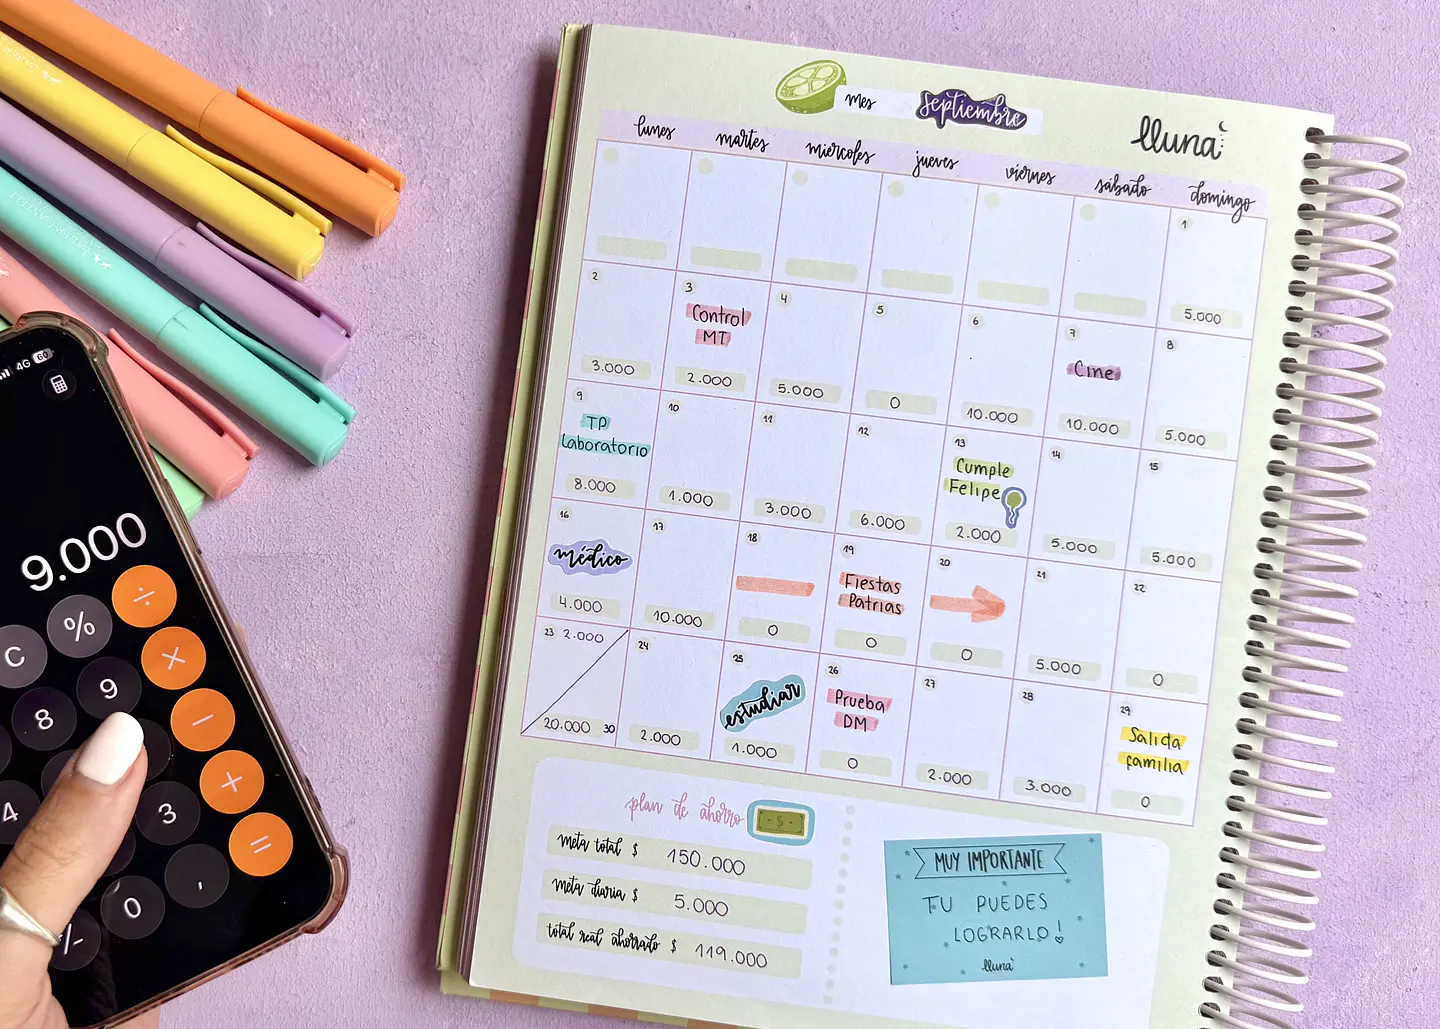 mes septiembre
lluna
lunes martes miercoles jueves viernes sábado domingo
1
5.000
2 3 4 5 6 7 8
Control
MT
Cine
3.000 2.000 5.000 0 10.000 10.000 5.000
9 10 11 12 13 14 15
TP
Laboratorio
Cumple
Felipe
8.000 1.000 3.000 6.000 2.000 5.000 5.000
16 17 18 19 20 21 22
médico
Fiestas
Patrias
4.000 10.000 0 0 0 5.000 0
23 2.000 24 25 26 27 28 29
estudiar
Prueba
DM
Salida
familia
20.000 30 2.000 1.000 0 2.000 3.000 0
plan de ahorro
$
meta total $ 150.000
meta diaria $ 5.000
total real ahorrado $ 119.000
MUY IMPORTANTE
TU PUEDES
LOGRARLO!
lluna
4G 60
9.000
C % ÷
8 9 ×
4 −
3 +
0 , =